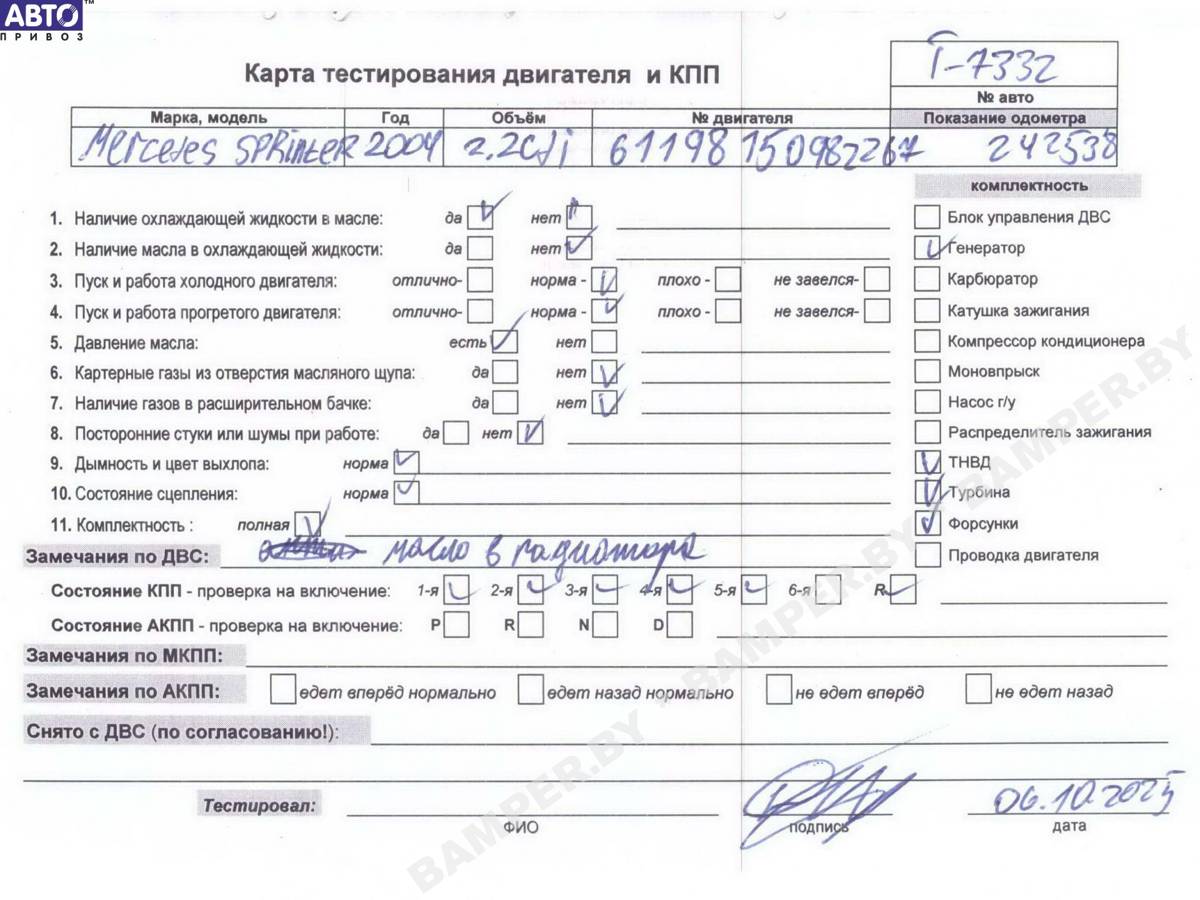 АВТО™
ПРИВОЗ
Карта тестирования двигателя и КПП
T-7332
№ авто
Марка, модель Год Объём № двигателя Показание одометра
Mercedes Sprinter 2004 2.2CDi 61198150982267 242538
комплектность
1. Наличие охлаждающей жидкости в масле: да нет Блок управления ДВС
2. Наличие масла в охлаждающей жидкости: да нет Генератор
3. Пуск и работа холодного двигателя: отлично- норма - плохо - не завелся- Карбюратор
4. Пуск и работа прогретого двигателя: отлично- норма - плохо - не завелся- Катушка зажигания
5. Давление масла: есть нет Компрессор кондиционера
6. Картерные газы из отверстия масляного щупа: да нет Моновпрыск
7. Наличие газов в расширительном бачке: да нет Насос г/у
8. Посторонние стуки или шумы при работе: да нет Распределитель зажигания
9. Дымность и цвет выхлопа: норма ТНВД
10. Состояние сцепления: норма Турбина
11. Комплектность : полная Форсунки
Замечания по ДВС: масло в радиатора Проводка двигателя
Состояние КПП - проверка на включение: 1-я 2-я 3-я 4-я 5-я 6-я R
Состояние АКПП - проверка на включение: P R N D
Замечания по МКПП:
Замечания по АКПП: едет вперёд нормально едет назад нормально не едет вперёд не едет назад
Снято с ДВС (по согласованию!):
Тестировал: 06.10.2025
ФИО подпись дата
BAMPER.BY - BAMPER.BY - BAMPER.BY - BAMPER.BY